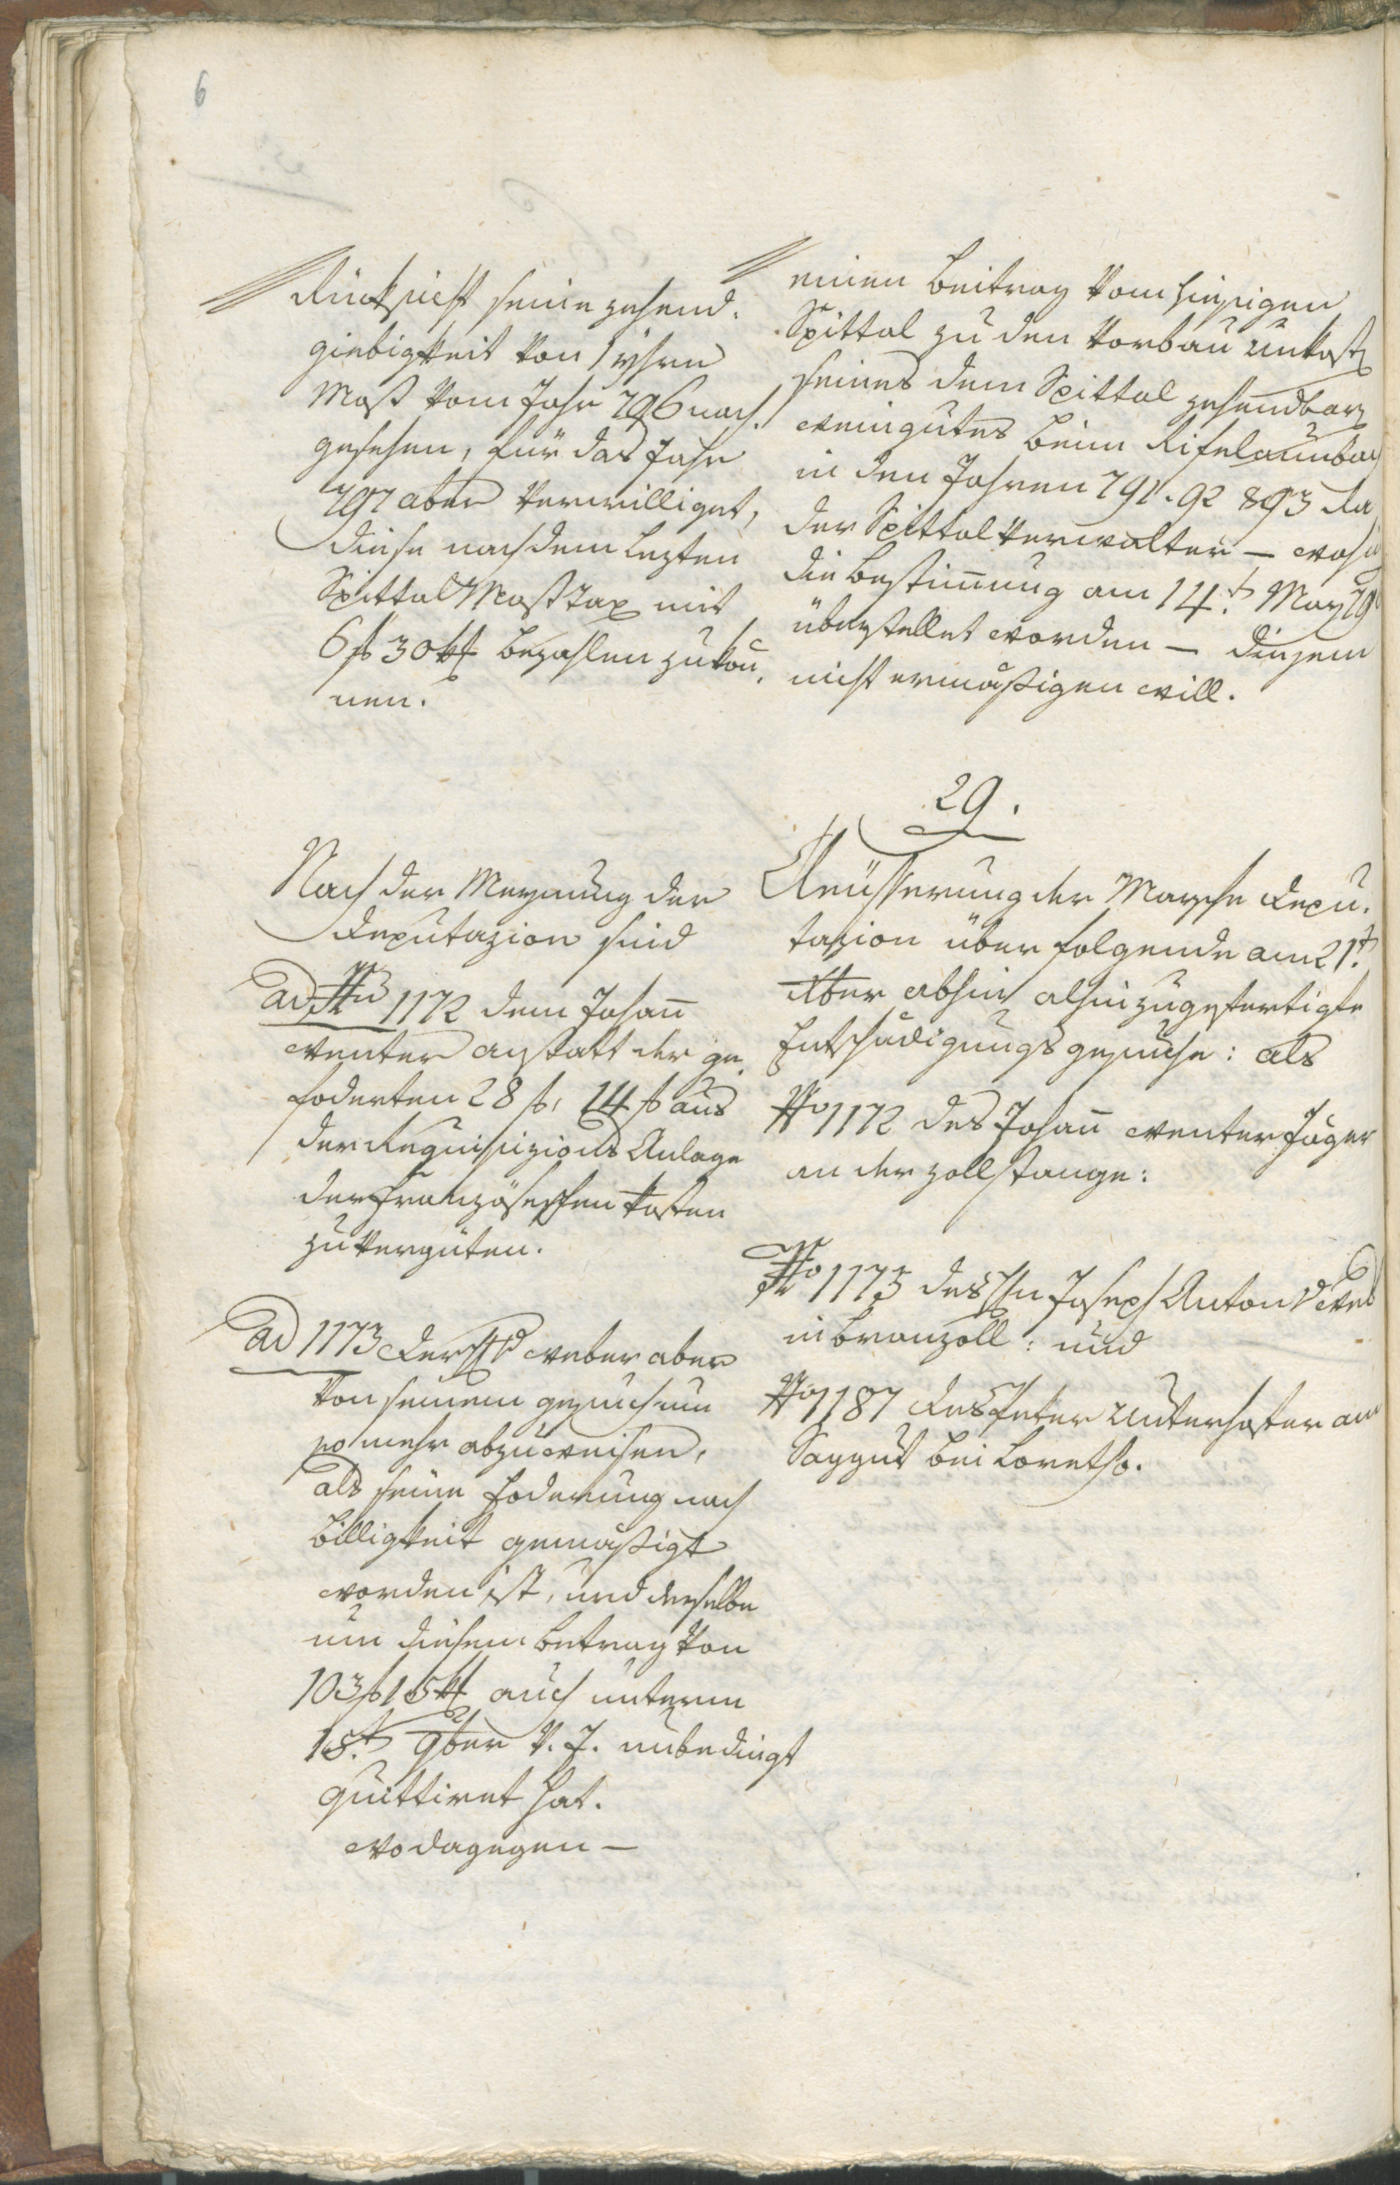 6
Rücksicht seine zehend-
giebigkeit von 1 yhrn
Most vom Jahr 796 nach-
gesehen, für das Jahr
797 aber verwilliget,
diese nach dem lezten
Spittal Mosttax mit
6 f 30 kr bezahlen zu kön-
nen.
Nach der Meynung der
Deputazion seid
ad No 1172 dem Johann
Venter anstatt der ge-
foderten 28 f, 14 f aus
der Requisizions Anlage
der französischen kosten
zu vergüten.
ad 1173 der Hr Weber aber
von seinem gesuch um
so mehr abzuweisen,
als seine Foderung nach
Billigkeit gemäßigt
worden ist, und derselbe
um diesem Betrag von
103 f 15 kr auch unterm
18t 9ber v. J. unbedingt
quittiret hat.
wo dagegen —
einen Beitrag vom hiesigen
Spittal zu den vorbau unkost
seines dem Spittal zehendbar
weingutes beim
in den Jahren 791. 92 & 93 da
der Spittalverwalter —
die Bestimung am 14t May 79
überstellet worden — diesem
nicht ermäßigen will.
29.
Aeüsserung der Marsche Depu-
tazion über folgende am 21t
abhin ahin zugefertigte
Entschädigungs gesuche: als
No 1172 des Johann Venter Jäger
an der zollstange:
No 1173 des Hn Joseph Anton Weber
in Branzoll: und
No 1187 des Peter Unterhofer am
Saggut bei Loretho.